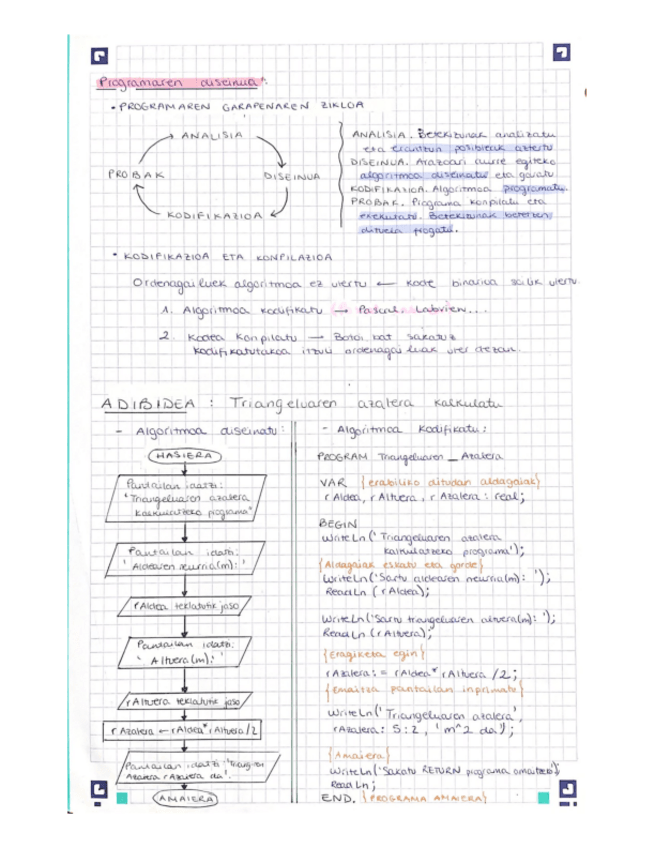 Programaren diseinua:
• PROGRAMAREN GARAPENAREN ZIKLOA
ANALISIA
DISEINUA
KODIFIKAZIOA
PROBAK
ANALISIA. Betekizunak analizatu
eta erantzun posibleak aztertu
DISEINUA. Arazoari aurre egiteko
algoritmoa diseinatu eta garatu
KODIFIKAZIOA. Algoritmoa programatu.
PROBAK. Programa konpilatu eta
exekutatu. Betekizunak betetzen
dituela frogatu.
• KODIFIKAZIOA ETA KONPILAZIOA
Ordenagailuek algoritmoa ez ulertu ← kode binarioa soilik ulertu.
1. Algoritmoa kodifikatu → Pascal, Labview...
2. Kodea konpilatu → Botoi bat sakatuz
kodifikatutakoa itzuli ordenagailuak uler dezan.
ADIBIDEA : Triangeluaren azalera kalkulatu
- Algoritmoa diseinatu:
HASIERA
Pantailan idatzi:
"Triangeluaren azalera
kalkulatzeko programa"
Pantailan idatzi:
'Aldearen neurria(m):'
rAldea teklatutik jaso
Pantailan idatzi:
'Altuera(m):'
rAltuera teklatutik jaso
rAzalera ← rAldea * rAltuera/2
Pantailan idatzi:
Azalera rAzalera da'.
AMAIERA
- Algoritmoa kodifikatu:
PROGRAM Triangeluaren_Azalera
VAR {erabiliko ditudan aldagaiak}
rAldea, rAltuera, rAzalera : real;
BEGIN
WriteLn('Triangeluaren azalera
kalkulatzeko programa');
{Aldagaiak eskatu eta gorde}
WriteLn('Sartu aldearen neurria(m): ');
ReadLn (rAldea);
WriteLn('Sartu triangeluaren altuera(m): ');
ReadLn (rAltuera);
{Eragiketa egin}
rAzalera:= rAldea* rAltuera /2;
{emaitza pantailan inprimatu}
WriteLn('Triangeluaren azalera',
rAzalera: 5:2, 'm^2 da');
{Amaiera}
WriteLn('Sakatu RETURN programa amaitzeko')
ReadLn;
END. {PROGRAMA AMAIERA}